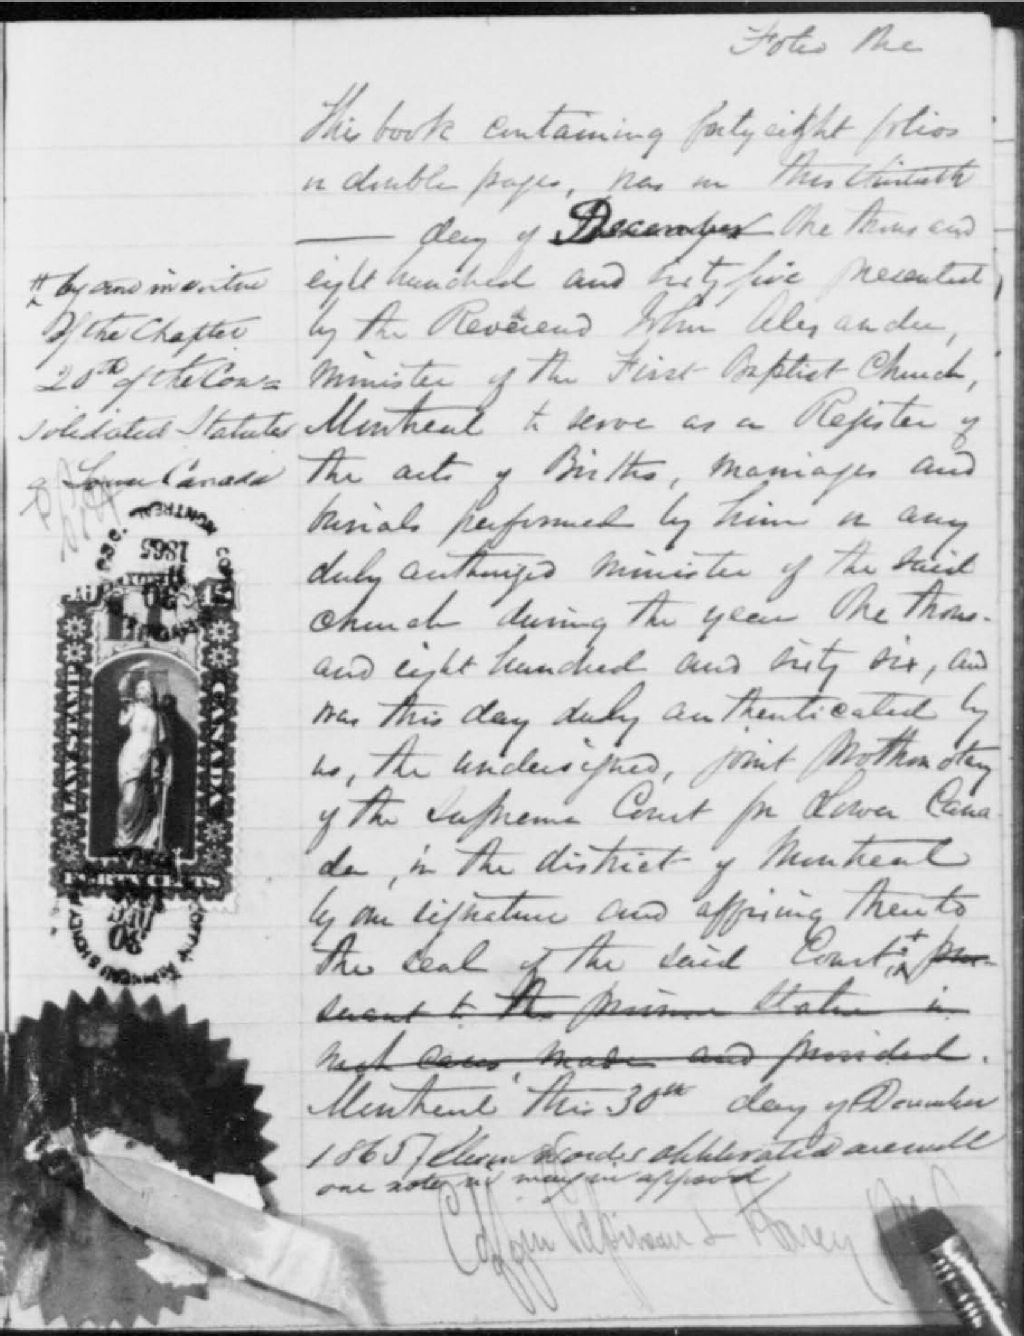 Folio One
This book containing forty eight folios
or double pages, was on this thirtieth
day of December One thousand
eight hundred and sixty five presented
by the Reverend John Alexander,
minister of the First Baptist Church,
Montreal to serve as a Register of
the acts of Births, marriages and
burials performed by him or any
duly authorized minister of the said
church during the year One thous-
and eight hundred and sixty six, and
was this day duly authenticated by
us, the undersigned, joint Prothonotary
of the Superior Court for Lower Cana-
da, in the district of Montreal
by our signature and affixing thereto
the seal of the said Court, pur-
suant to the Statute in
such cases made and provided.
Montreal this 30th day of December
1865 / Eleven words obliterated are null
one note in margin approved
Coffin Papineau & Honey
# by and in virtue
of the Chapter
20th of the Con=
solidated Statutes
Lower Canada
MONTREAL
1865
LAW STAMP
CANADA
30